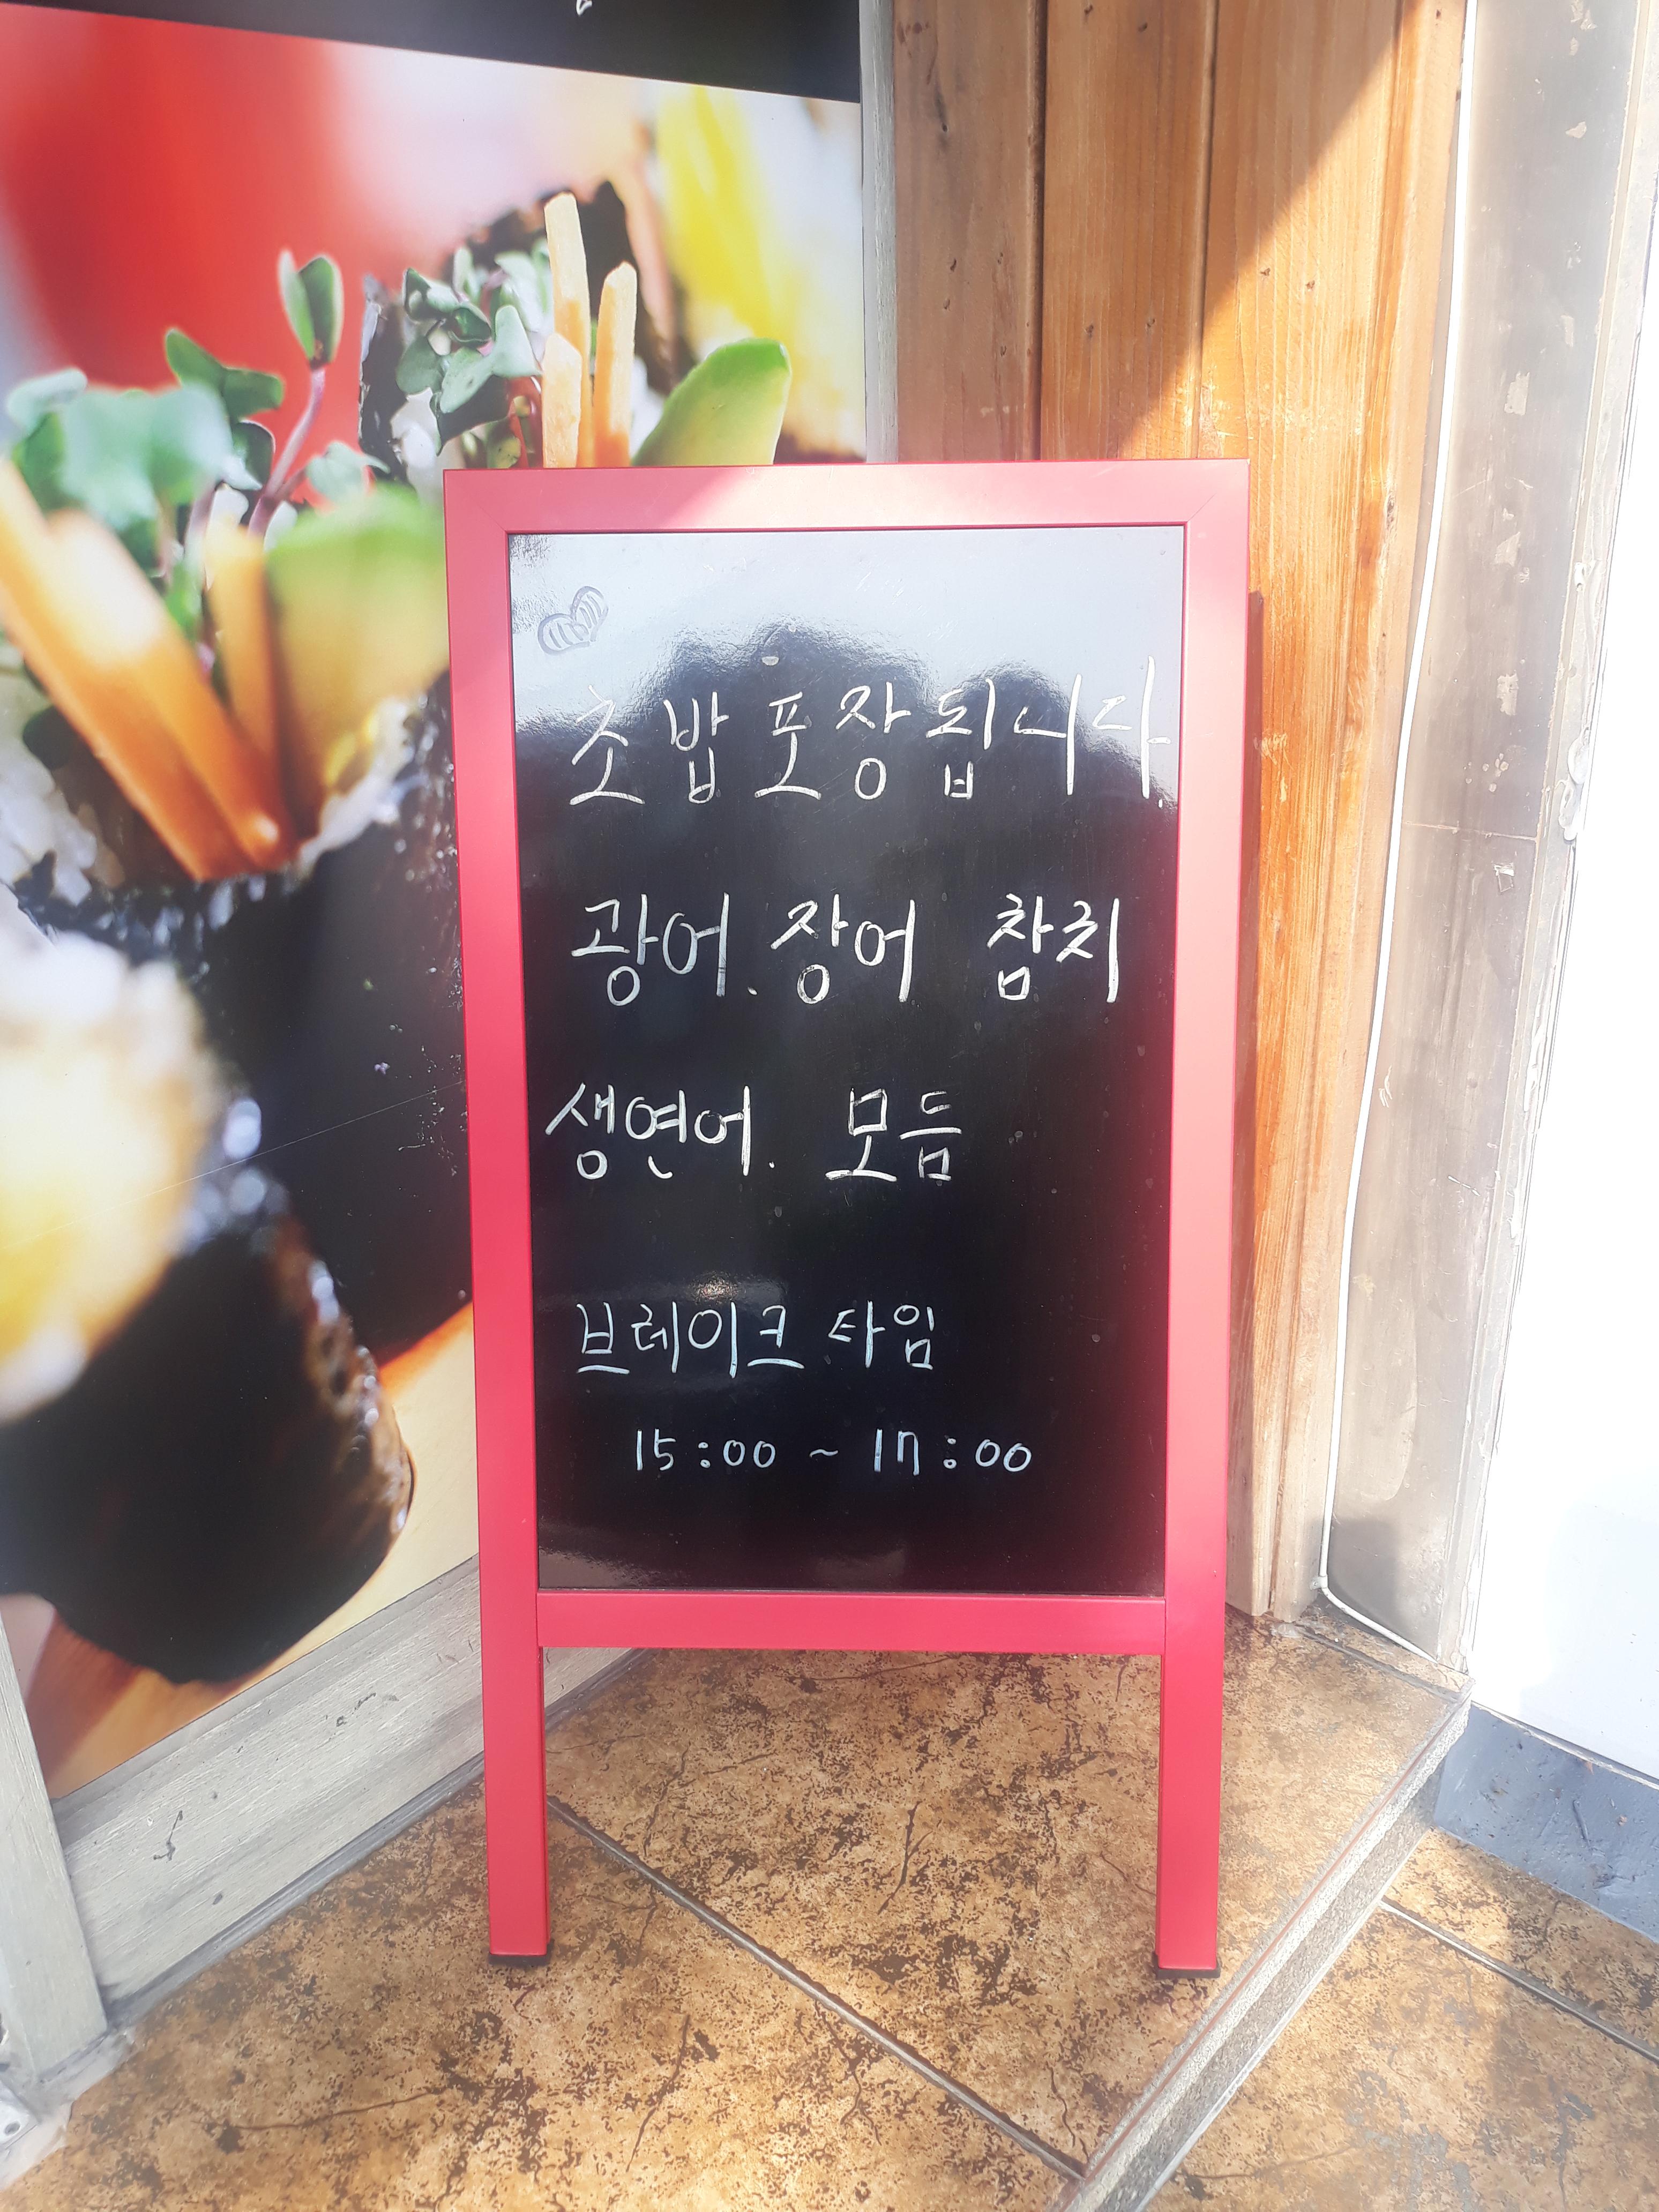 초밥 포장 됩니다.
광어. 장어 참치
생연어. 모듬
브레이크 타임
15:00 ~ 17:00